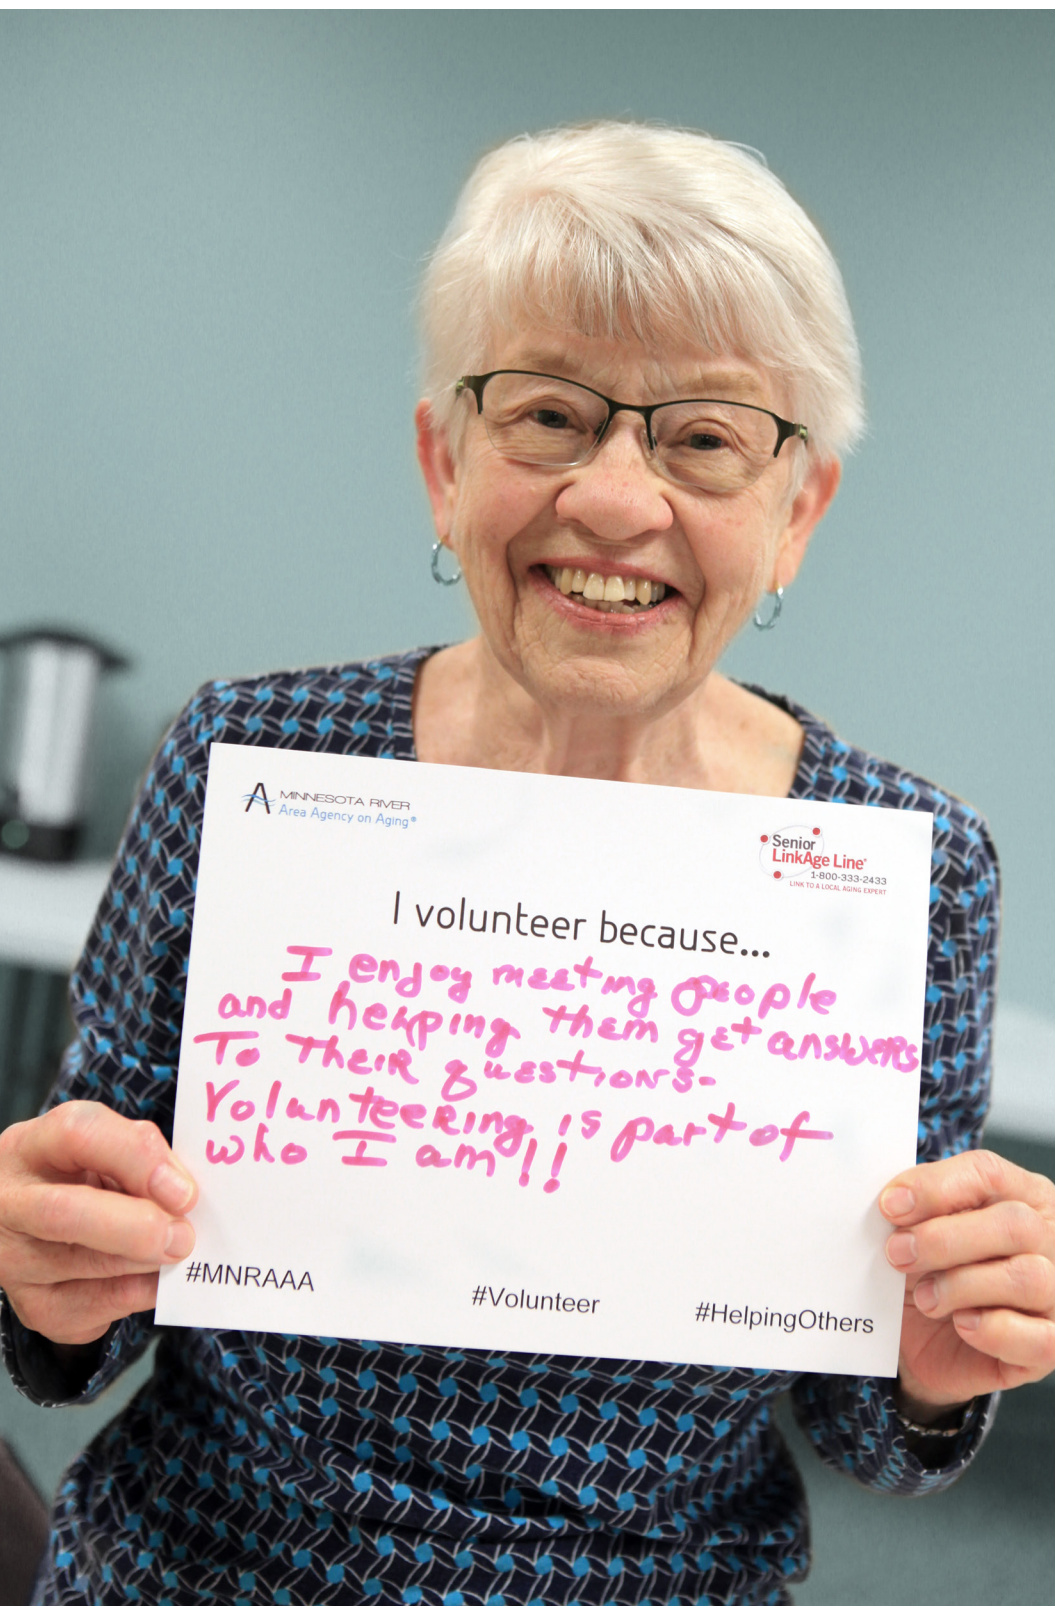 MINNESOTA RIVER
Area Agency on Aging®
Senior
LinkAge Line®
1-800-333-2433
LINK TO A LOCAL AGING EXPERT
I volunteer because...
I enjoy meeting people
and helping them get answers
To Their questions.
Volunteering is part of
who I am!!
#MNRAAA
#Volunteer
#HelpingOthers